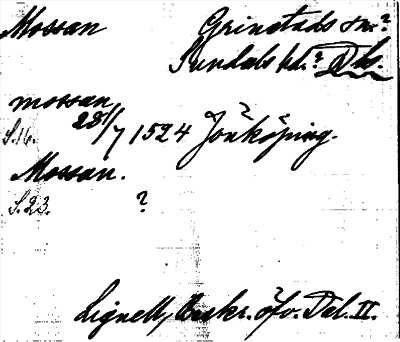 Mossan Grinstads sn.?
Sundals hd.? Ds.
mossan
S.16. 28/7 1524 Jönköping.
Mossan.
S.23. ?
Lignell, Beskr. öfv. Dal. II.